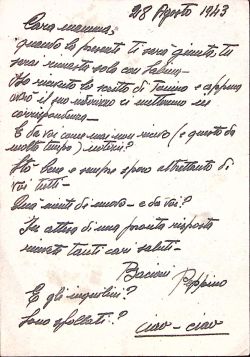 28 Agosto 1943
Cara mamma,
quando la presente ti sarà giunta, tu
sarai rimasta sola con Sabina.
Ho ricevuto lo scritto di Tonino e appena
avrò il suo indirizzo ci metteremo in
corrispondenza.
E da voi come mai non ricevo (e questo da
molto tempo) notizie?
Sto bene e sempre spero altrettanto di
voi tutti -
Qua niente di nuovo - e da voi?
In attesa di una pronta risposta
ricevete tanti cari saluti -
Bacioni Peppino
E gli inquilini?
Sono sfollati? ciao - ciao